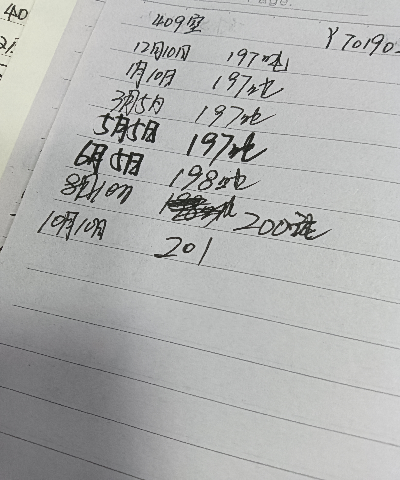 409室
¥70190
12月10日 197吨
1月10日 197吨
3月5日 197吨
5月5日 197吨
6月5日 198吨
8月10日 200吨
10月10日 201
40